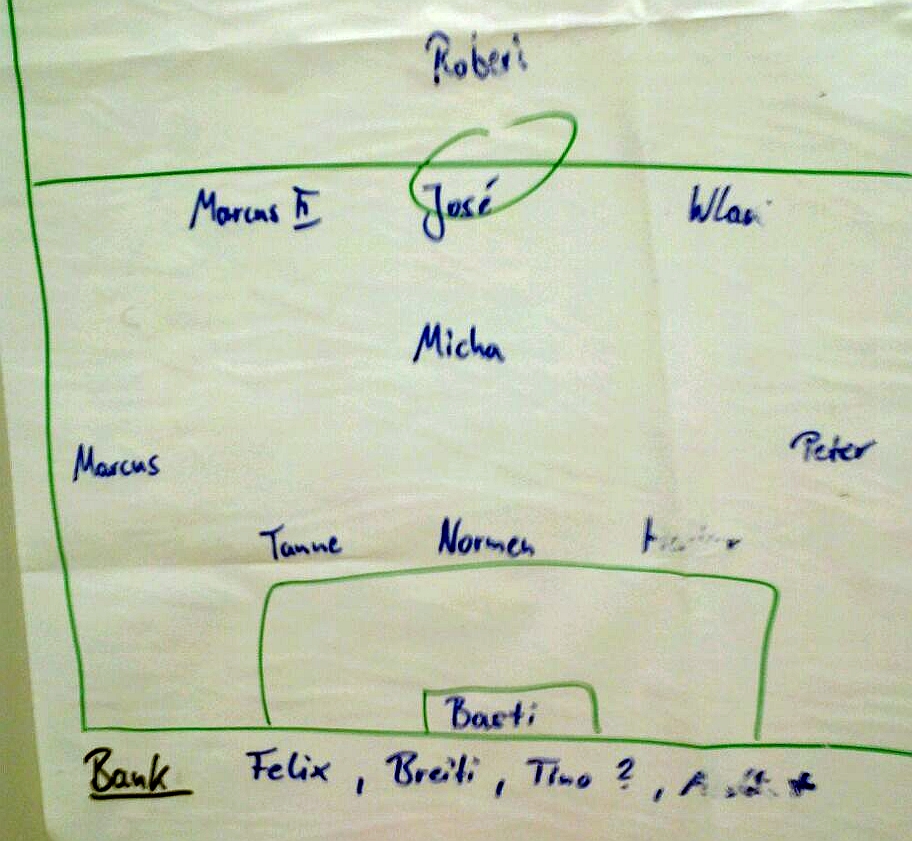 Robert
Marcus II José Wlad
Micha
Marcus Peter
Tanne Normen
Basti
Bank Felix, Breiti, Tino ?,